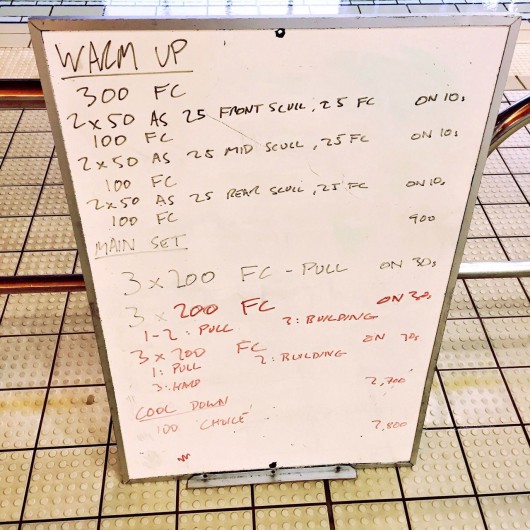 WARM UP
300 FC
2x50 AS 25 FRONT SCULL, 25 FC ON 10s
100 FC
2x50 AS 25 MID SCULL, 25 FC ON 10s
100 FC
2x50 AS 25 REAR SCULL, 25 FC ON 10s
100 FC 900
MAIN SET
3x200 FC - PULL ON 30s
3x 200 FC ON 30s
1-2: PULL 3: BUILDING
3x200 FC ON 30s
1: PULL 2: BUILDING
3: HARD 2,700
COOL DOWN
100 CHOICE 2,800